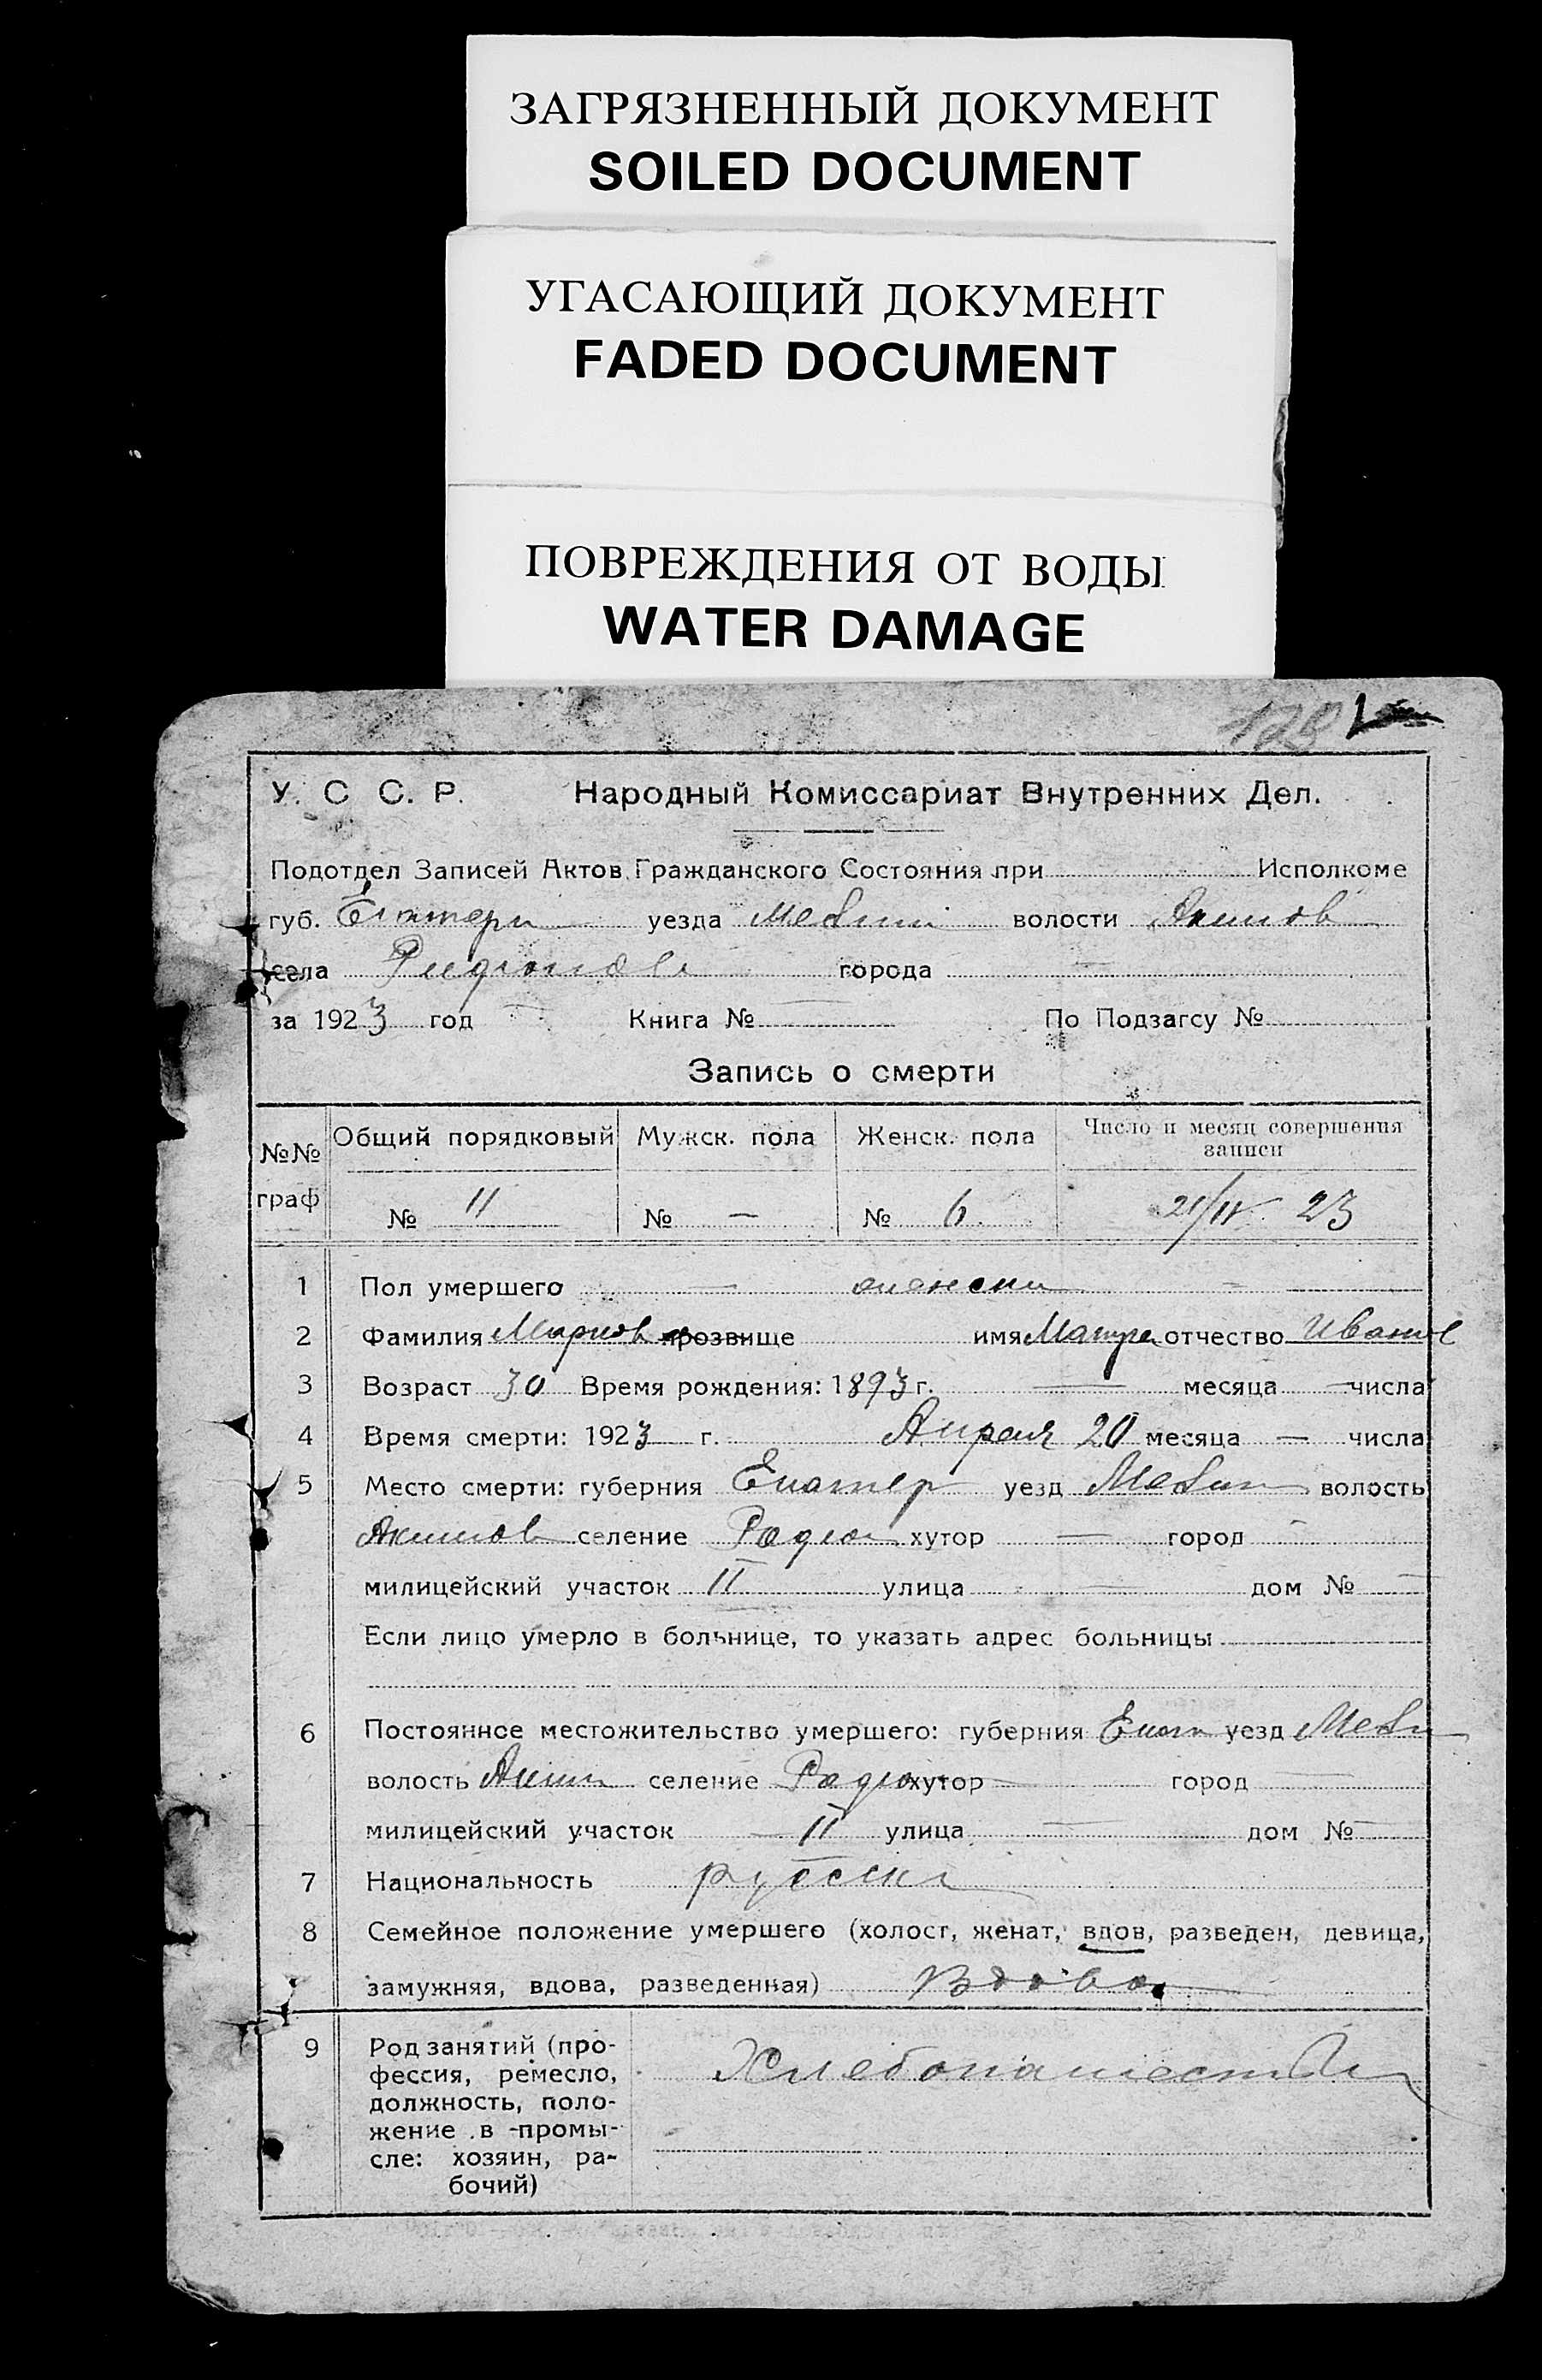 ЗАГРЯЗНЕННЫЙ ДОКУМЕНТ
SOILED DOCUMENT
УГАСАЮЩИЙ ДОКУМЕНТ
FADED DOCUMENT
ПОВРЕЖДЕНИЯ ОТ ВОДЫ
WATER DAMAGE
128
У. С С. Р. Народный Комиссариат Внутренних Дел.
Подотдел Записей Актов Гражданского Состояния при Исполкоме
губ. Екатери уезда Мелит волости Акимов
села города
за 1923 год Книга № По Подзагсу №
Запись о смерти
№№ граф Общий порядковый Мужск. пола Женск. пола Число и месяц совершения записи
№ 11 № — № 6 21/IV 23
1 Пол умершего — женски
2 Фамилия Марков прозвище имя Матре отчество Иванов
3 Возраст 30 Время рождения: 1893 г. — месяца — числа
4 Время смерти: 1923 г. Апреля 20 месяца — числа
5 Место смерти: губерния Екатер уезд Мелит волость
Акимов селение Радио хутор — город —
милицейский участок II улица — дом № —
Если лицо умерло в больнице, то указать адрес больницы
6 Постоянное местожительство умершего: губерния Екат уезд Мели
волость Аким селение Радио хутор — город —
милицейский участок — II улица — дом № —
7 Национальность русски
8 Семейное положение умершего (холост, женат, вдов, разведен, девица,
замужняя, вдова, разведенная) Вдова
9 Род занятий (про-
фессия, ремесло,
должность, поло-
жение в промы-
сле: хозяин, ра-
бочий)
Хлебопашеств